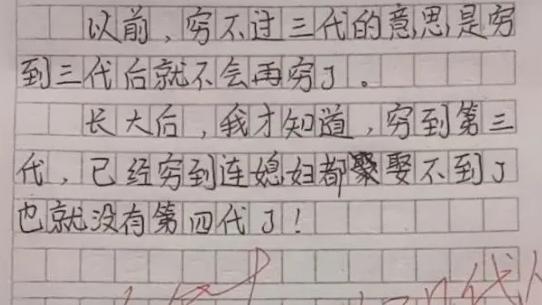 以前，穷不过三代的意思是穷
到三代后就不会再穷了。
长大后，我才知道，穷到第三
代，已经穷到连媳妇都娶不到了
也就没有第四代了！